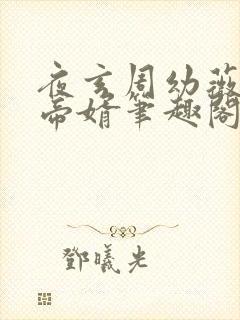 夜玄周幼薇
帝婿筆趣閣
鄧曦光